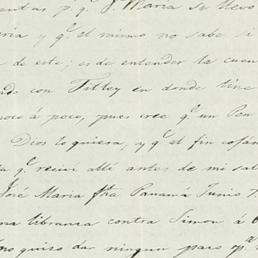 entas p.q.e J. Maria se llevo
eria y q.e el mismo no sabe si
de este; es de entender la cuen
do con Tilley en donde tine
poco á poco, pues cree q.e un Pen
Dios lo quiera, y q.e el fin
q.e recivi allí antes de mi sal
José Maria fha Panamá Junio
na libranza contra Simon á
no quiso dar ningun paso